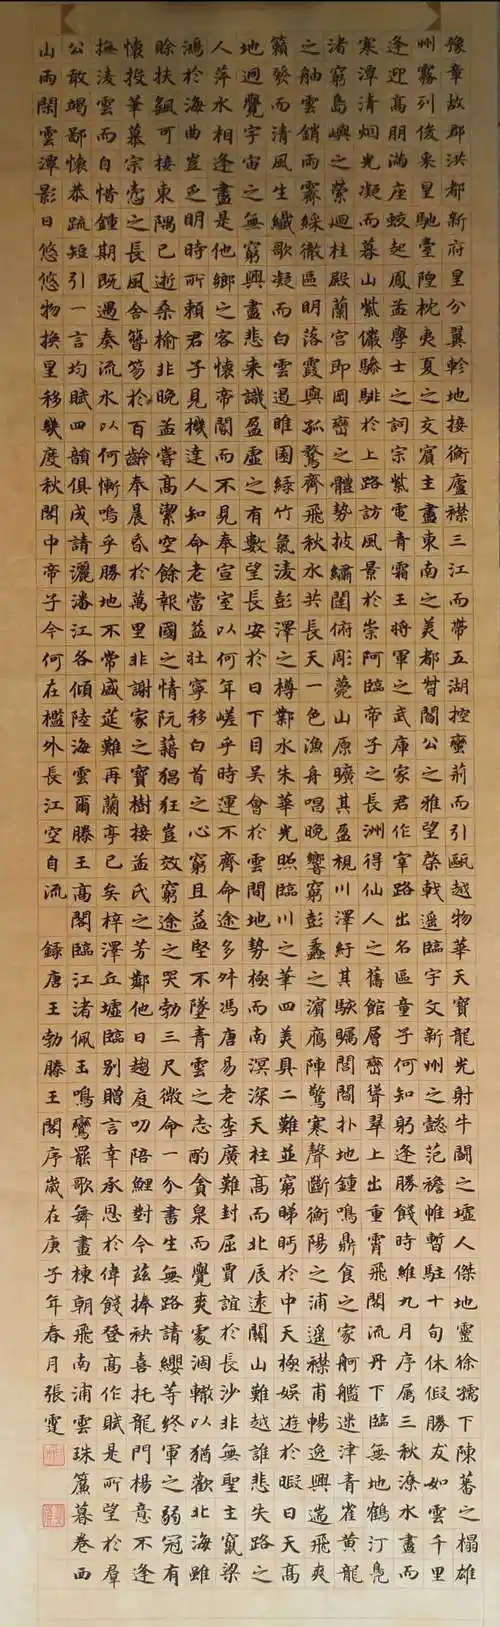 豫章故郡洪都新府星分翼軫地接衡廬襟三江而帶五湖控蠻荊而引甌越物華天寶龍光射牛闘之墟人傑地靈徐孺下陳蕃之榻雄
州霧列俊采星馳臺隍枕夷夏之交賓主盡東南之美都督閻公之雅望棨戟遙臨宇文新州之懿范襜帷暫駐十旬休假勝友如雲千里
逢迎高朋滿座蛟起鳳孟學士之詞宗紫電青霜王將軍之武庫家君作宰路出名區童子何知躬逢勝餞時維九月序属三秋潦水盡而
寒潭清烟光凝而暮山紫儼驂騑於上路訪風景於崇阿臨帝子之長洲得仙人之舊館層巒聳翠上出重霄飛閣流丹下臨無地鶴汀鳧
渚窮島嶼之縈迴桂殿蘭宮即岡巒之體勢披繡闥俯彫甍山原曠其盈視川澤紆其駭矚閭閻扑地鍾鳴鼎食之家舸艦迷津青雀黃龍
之舳雲銷雨霽綵徹區明落霞與孤鶩齊飛秋水共長天一色漁舟唱晚響窮彭蠡之濱鴈陣驚寒聲斷衡陽之浦遙襟甫暢逸興遄飛爽
籟發而清風生纖歌凝而白雲遏睢園綠竹氣凌彭澤之樽鄴水朱華光照臨川之筆四美具二難並窮睇眄於中天極娛遊於暇日天高
地迥覺宇宙之無窮興盡悲來識盈虛之有數望長安於日下目吳會於雲間地勢極而南溟深天柱高而北辰遠關山難越誰悲失路之
人萍水相逢盡是他鄉之客懷帝閽而不見奉宣室以何年嗟乎時運不齊命途多舛馮唐易老李廣難封屈賈誼於長沙非無聖主竄梁
鴻於海曲豈乏明時所賴君子見機達人知命老當益壯寧移白首之心窮且益堅不墜青雲之志酌貪泉而覺爽處涸轍以猶歡北海雖
賒扶飖可接東隅已逝桑榆非晚孟嘗高潔空餘報國之情阮藉猖狂豈效窮途之哭勃三尺微命一介書生無路請纓等終軍之弱冠有
懷投筆慕宗愨之長風舍簪笏於百齡奉晨昏於萬里非謝家之寶樹接孟氏之芳鄰他日趨庭叨陪鯉對今茲捧袂喜托龍門楊意不逢
撫凌雲而自惜鍾期既遇奏流水以何慚嗚乎勝地不常盛筵難再蘭亭已矣梓澤丘墟臨別贈言幸承恩於偉餞登高作賦是所望於羣
公敢竭鄙懷恭疏短引一言均賦四韻俱成請灑潘江各傾陸海雲爾滕王高閣臨江渚佩玉鳴鸞罷歌舞畫棟朝飛南浦雲珠簾暮卷西
山雨閑雲潭影日悠悠物換星移幾度秋閣中帝子今何在檻外長江空自流 錄唐王勃滕王閣序歲在庚子年春月張霆